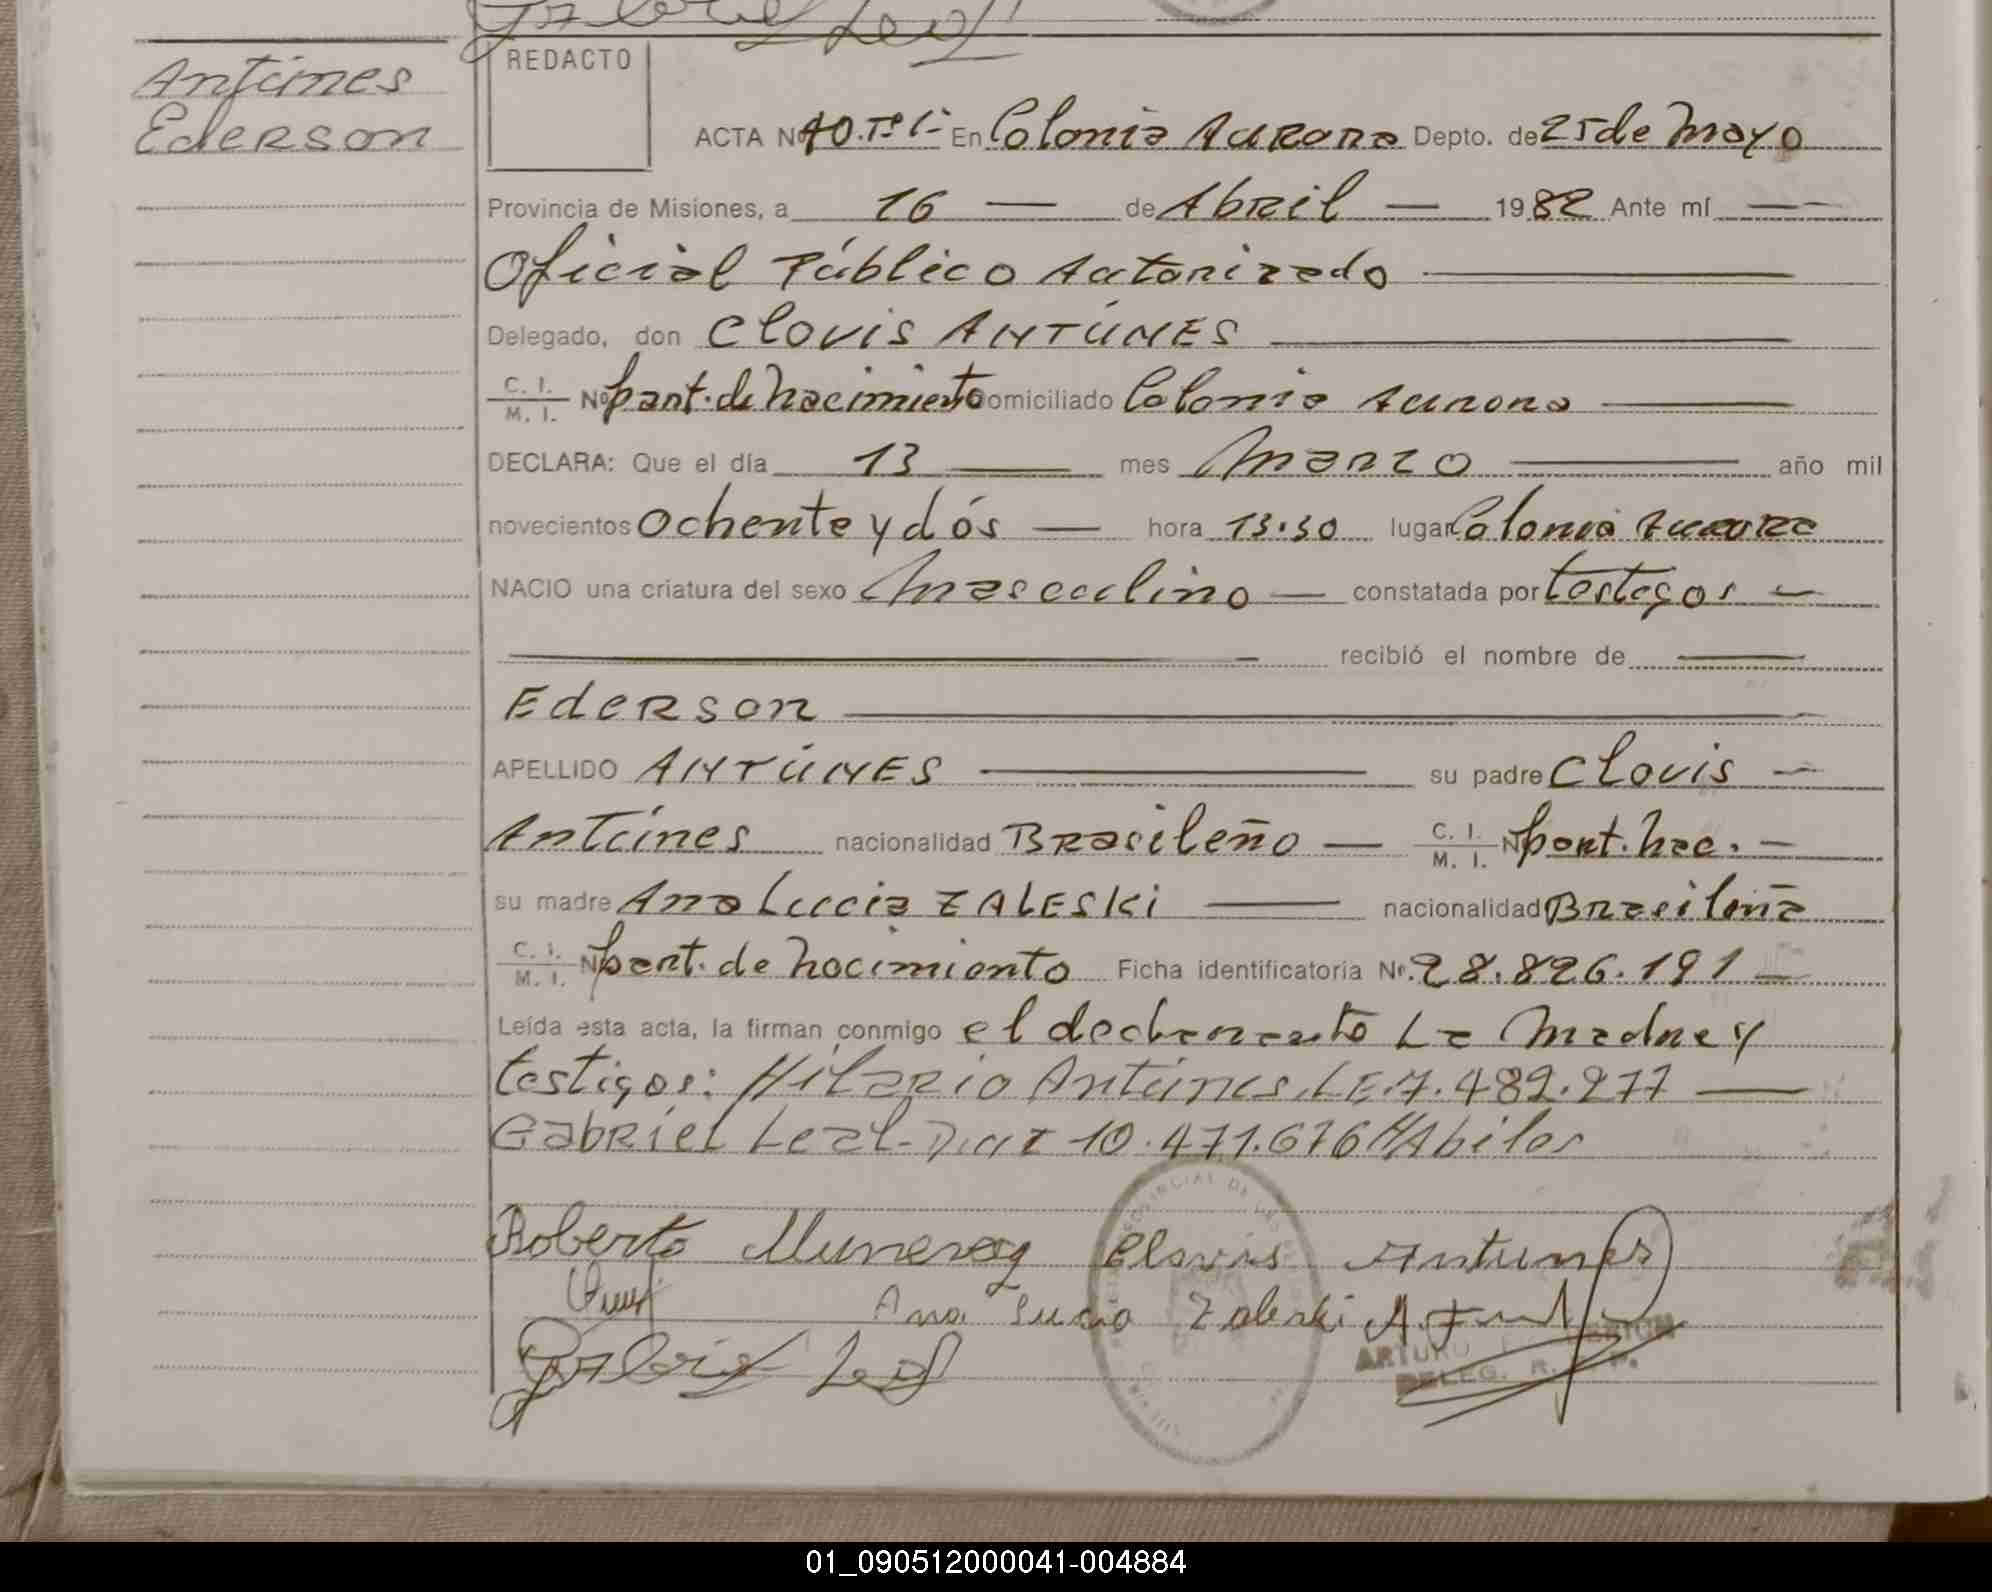 Gabriel Leal
Antúnes
Ederson
REDACTO
ACTA Nº 40.Tº1- En Colonia Aurora Depto. de 25 de Mayo
Provincia de Misiones, a 16 — de Abril — 1982 Ante mí —
Oficial Público Autorizado
Delegado, don Clovis ANTÚNES
C. I.
M. I. Nº part. de Nacimiento Domiciliado Colonia Aurora
DECLARA: Que el día 13 — mes Marzo — año mil
novecientos Ochenta y dós — hora 13.30 lugar Colonia Aurora
NACIO una criatura del sexo Masculino — constatada por testigos —
recibió el nombre de
Ederson
APELLIDO ANTÚNES — su padre Clovis —
Antúnes nacionalidad Brasileño — C. I.
M. I. Nº part. Nac. —
su madre Ana Lucia ZALESKi — nacionalidad Brasileña
C. I.
M. I. Nº part. de Nacimiento Ficha identificatoria Nº 28.826.191 —
Leída esta acta, la firman conmigo el declarante La Madre y
testigos: Hilario Antúnes, L.E. 7.482.277 —
Gabriel Leal- D.N.I 10.471.676 HAbiles
Roberto Clovis Antunes
Ana Lucia Zaleski
Gabriel Leal
ARTURO
DELEG. R.
PROVINCIAL DE LAS
01_090512000041-004884